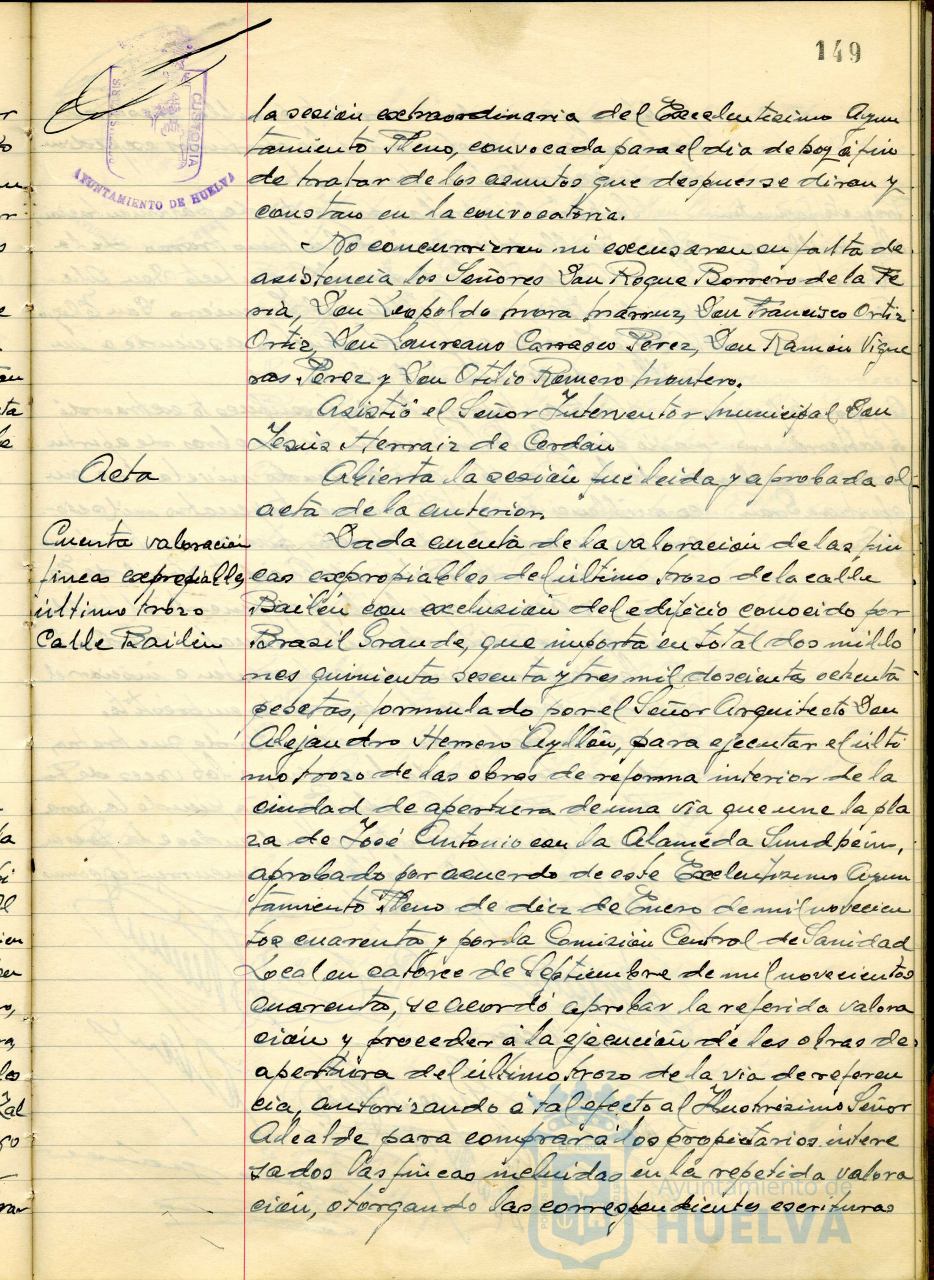 149
PORTUS MARIS
CUSTODIA
AYUNTAMIENTO DE HUELVA
la sesión extraordinaria del Excelentísimo Ayun
tamiento Pleno, convocada para el día de hoy á fin
de tratar de los asuntos que despues se diran y
constan en la convocatoria.
No concurrieron ni excusaron su falta de
asistencia los Señores Don Roque Borrero de la Fe
ria, Don Leopoldo Mora Márnuz, Don Francisco Ortiz
Ortiz, Don Laureano Carrasco Pérez, Don Ramón Vigue
ras Pérez y Don Otilio Romero Montero.
Asistió el Señor Interventor Municipal Don
Jesús Herraiz de Cerdán
Acta
Abierta la sesión fué leida y aprobada el
acta de la anterior.
Cuenta valoración
fincas expropiables
último trozo
Calle Bailén
Dada cuenta de la valoración de las fin
cas expropiables del último trozo de la calle
Bailén con exclusión del edificio conocido por
Brasil Grande, que importa en total dos millo
nes quinientas sesenta y tres mil doscientas ochenta
pesetas, formulado por el Señor Arquitecto Don
Alejandro Herrero Ayllón, para ejecutar el últi
mo trozo de las obras de reforma interior de la
ciudad de apertura de una vía que une la pla
za de José Antonio con la Alameda Sundheim,
aprobado por acuerdo de este Excelentísimo Ayun
tamiento Pleno de diez de Enero de mil novecien
tos cuarenta y por la Comisión Central de Sanidad
Local en catorce de Septiembre de mil novecientos
cuarenta, se acordó aprobar la referida valora
ción y proceder á la ejecución de las obras de
apertura del último trozo de la vía de referen
cia, autorizando á tal efecto al Ilustrísimo Señor
Alcalde para comprar á los propietarios intere
sados las fincas incluidas en la repetida valora
ción, otorgando las correspondientes escrituras
Ayuntamiento de
HUELVA